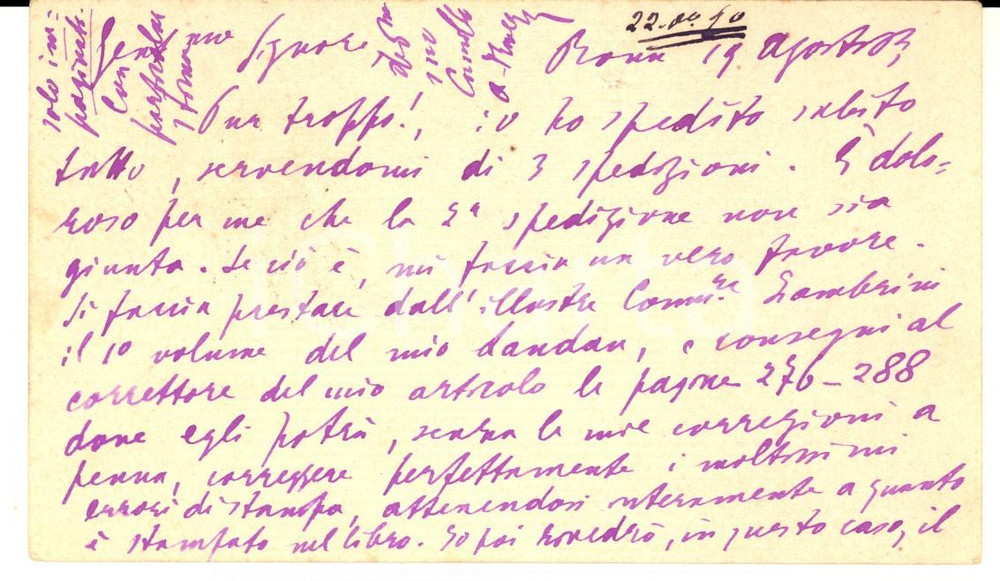 22.
Signore Roma 19 Agosto 83
Pur troppo!, io ho spedito subito
tutto, servendomi di 3 spedizioni. È dolo=
roso per me che la 2ª spedizione non sia
giunta. Se ciò è, mi faccia un vero favore.
Si faccia prestare dall'illustre Comm.re Zambrini
il 1º volume del mio
, e consegni al
correttore del mio articolo le pagine 276-288
dove egli potrà, senza le mie correzioni a
penna, correggere perfettamente i moltissimi
errori di stampa, attenendosi interamente a quanto
è stampato nel libro. Io poi rivedrò, in questo caso, il